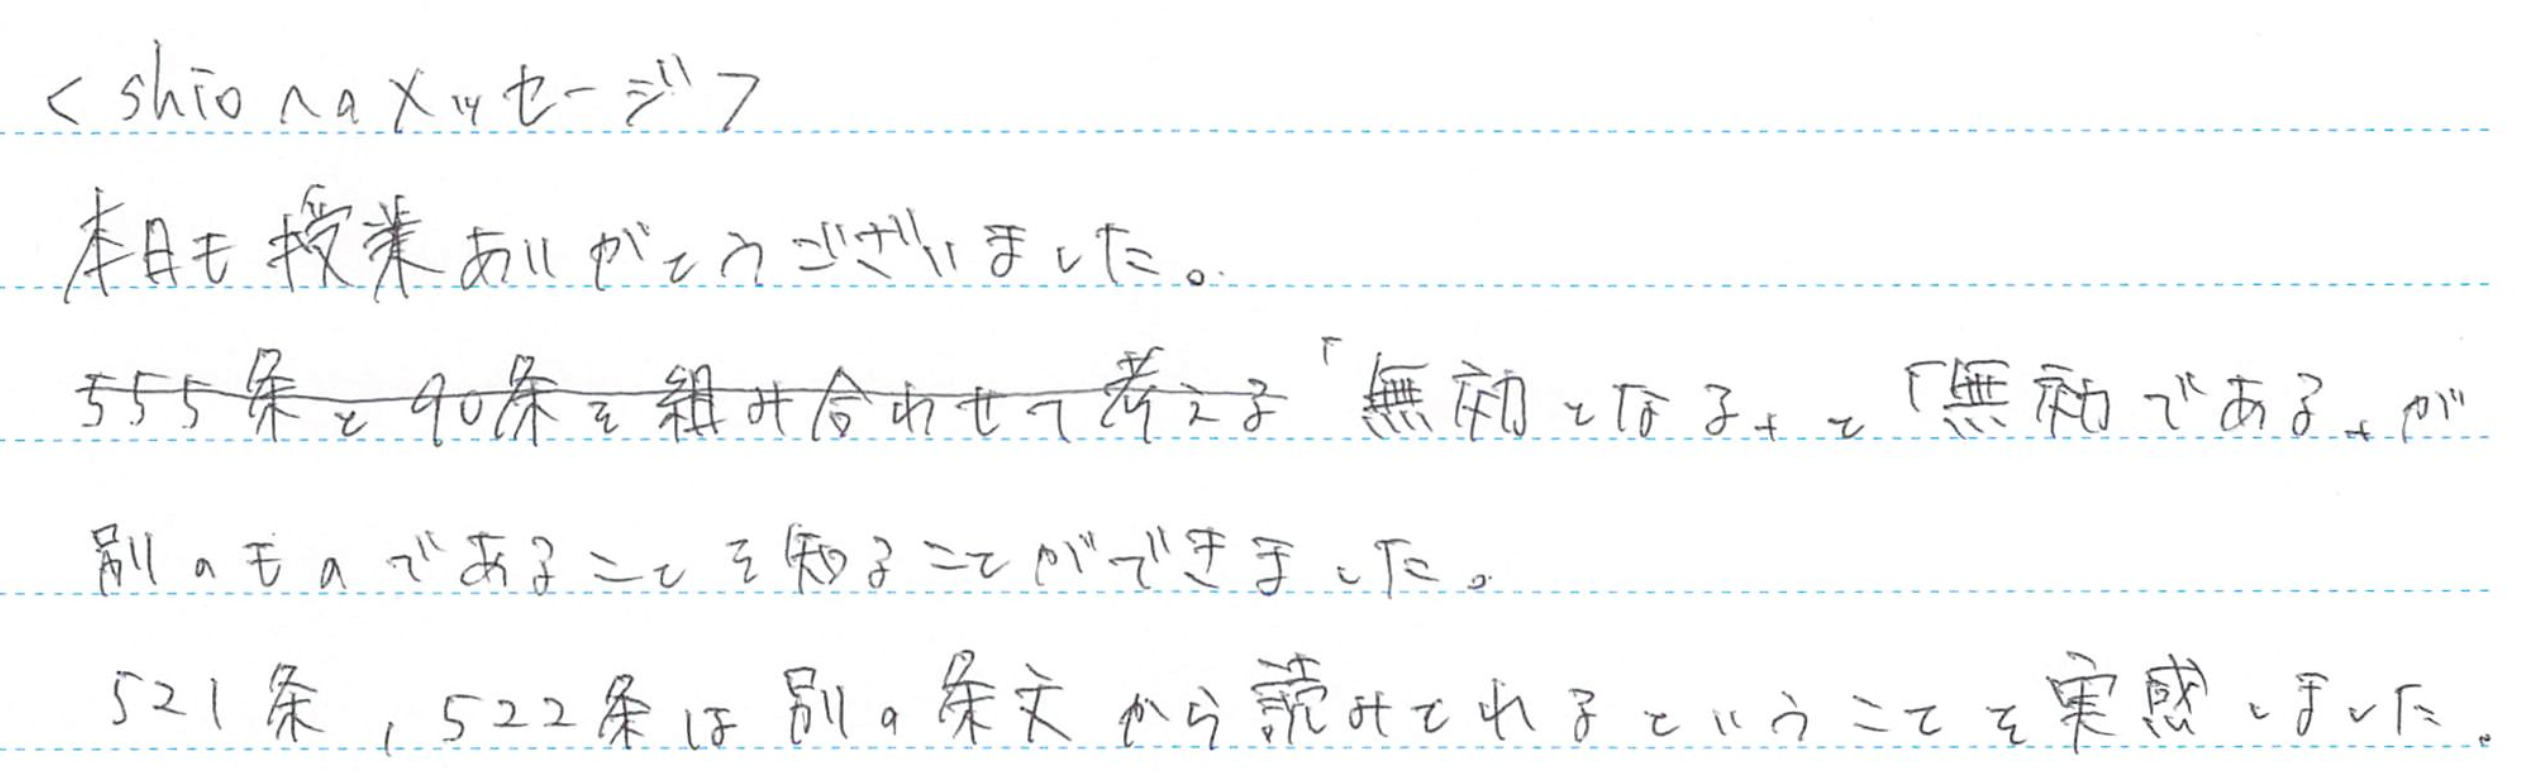 <shioへのメッセージ>
本日も授業ありがとうございました。
555条と90条を組み合わせて考える「無効となる」と「無効である」が
別のものであることを知ることができました。
521条,522条は別の条文から読みとれるということを実感しました。